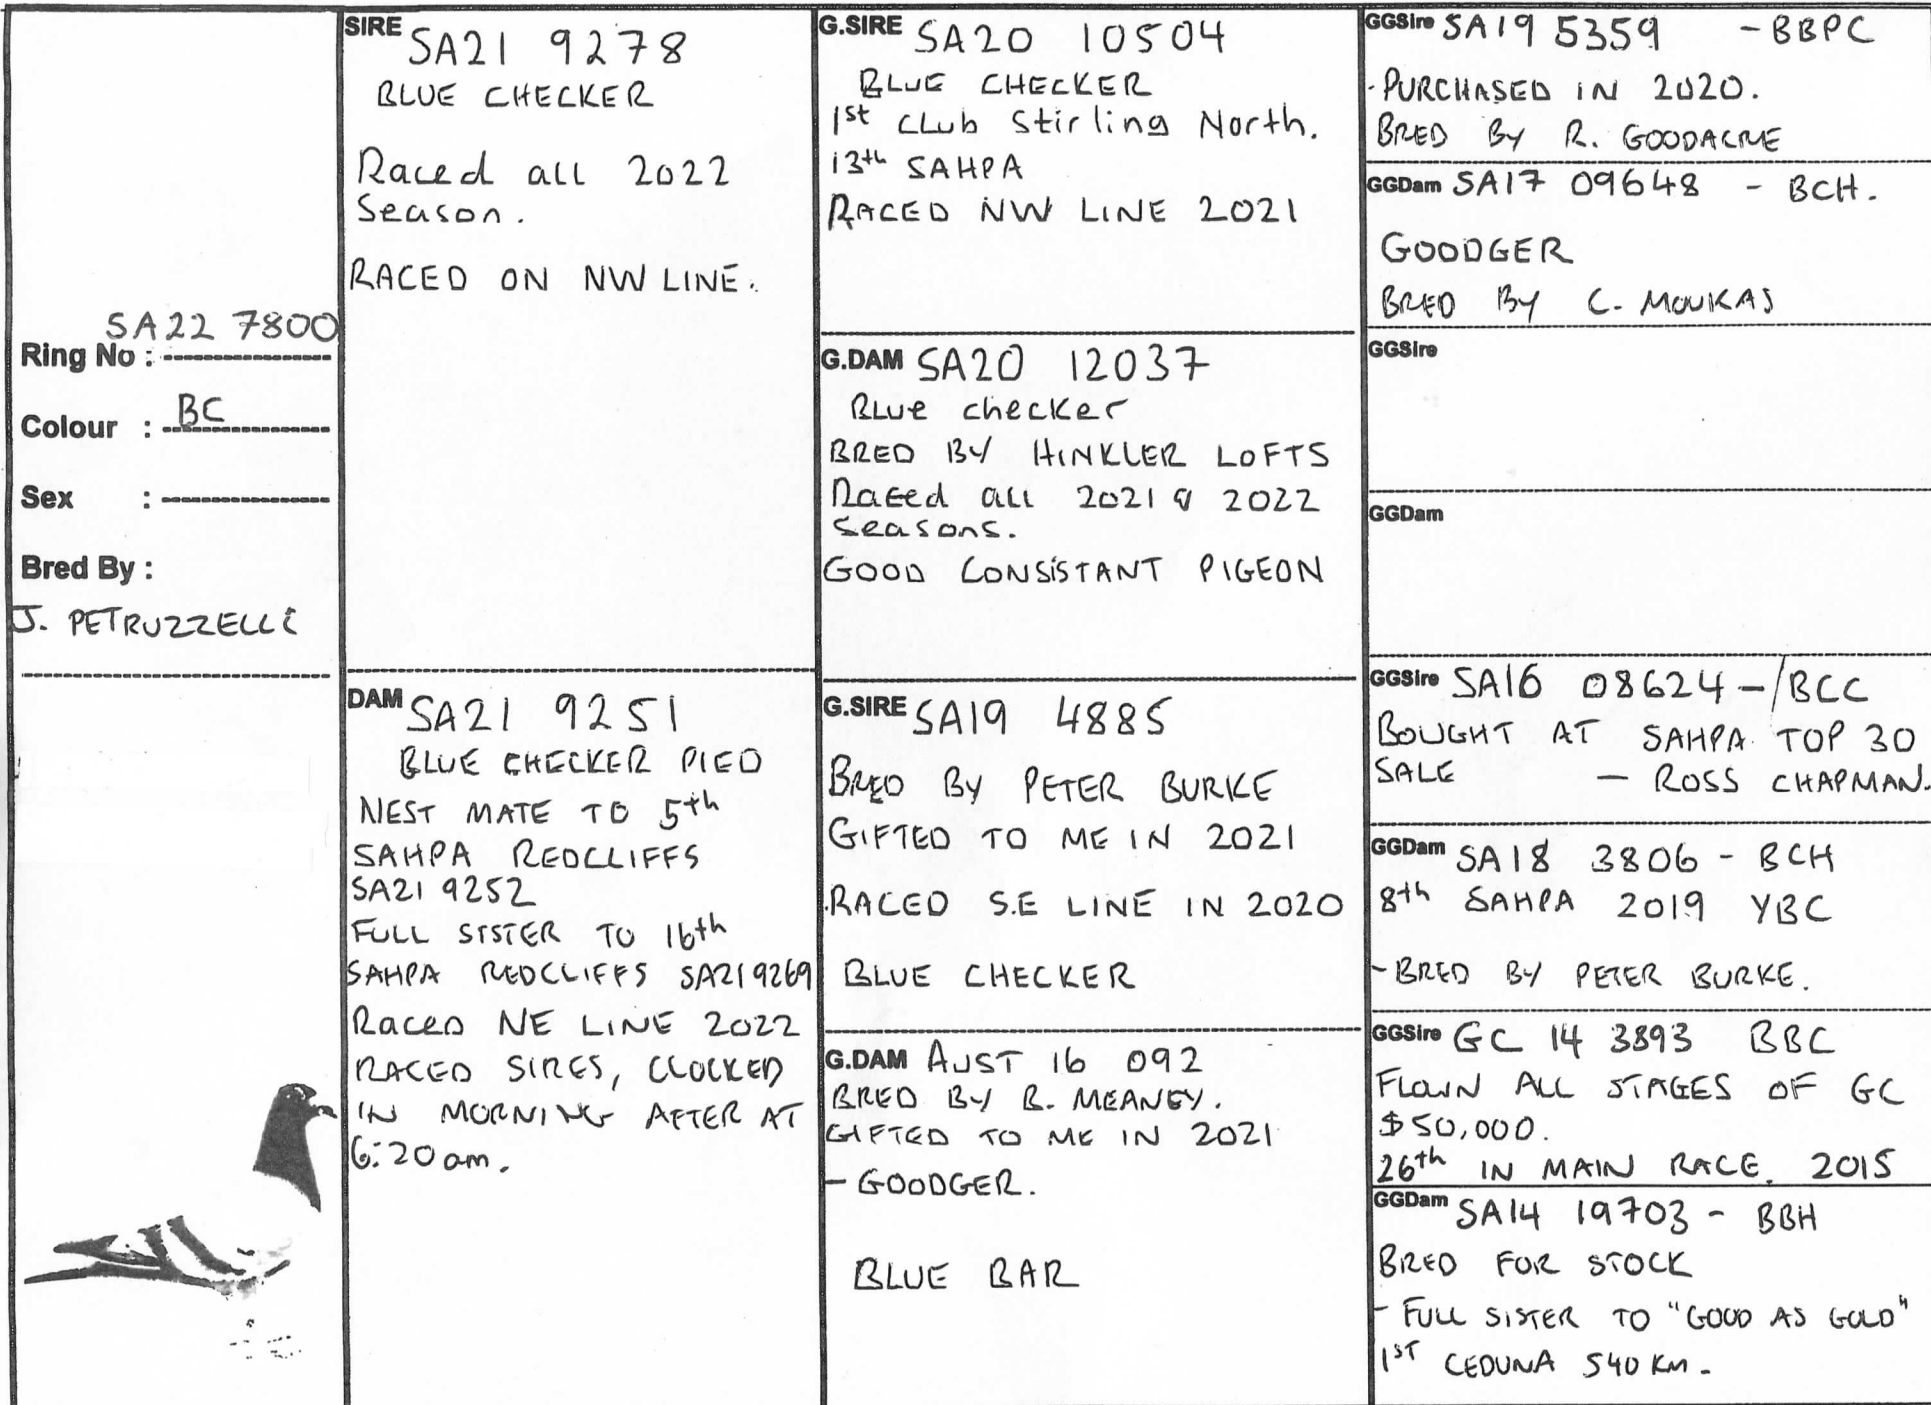 SA22 7800
Ring No :
Colour : BC
Sex :
Bred By :
J. PETRUZZELLI
SIRE SA21 9278
BLUE CHECKER
Raced all 2022
Season.
RACED ON NW LINE.
DAM SA21 9251
BLUE CHECKER PIED
NEST MATE TO 5th
SAHPA REDCLIFFS
SA21 9252
FULL SISTER TO 16th
SAHPA REDCLIFFS SA21 9269
Raced NE LINE 2022
RACED SIRES, CLOCKED
IN MORNING AFTER AT
6:20am.
G.SIRE SA20 10504
BLUE CHECKER
1st Club Stirling North.
13th SAHPA
RACED NW LINE 2021
G.DAM SA20 12037
Blue checker
BRED BY HINKLER LOFTS
Raced all 2021 & 2022
seasons.
GOOD CONSISTANT PIGEON
G.SIRE SA19 4885
BRED BY PETER BURKE
GIFTED TO ME IN 2021
RACED S.E LINE IN 2020
BLUE CHECKER
G.DAM AUST 16 092
BRED BY B. MEANEY.
GIFTED TO ME IN 2021
- GOODGER.
BLUE BAR
GGSire SA19 5359 - BBPC
- PURCHASED IN 2020.
BRED BY R. GOODACRE
GGDam SA17 09648 - BCH.
GOODGER
BRED BY C. MOUKAS
GGSire
GGDam
GGSire SA16 08624 - BCC
BOUGHT AT SAHPA TOP 30
SALE - ROSS CHAPMAN.
GGDam SA18 3806 - BCH
8th SAHPA 2019 YBC
- BRED BY PETER BURKE.
GGSire GC 14 3893 BBC
FLOWN ALL STAGES OF GC
$50,000.
26th IN MAIN RACE. 2015
GGDam SA14 19703 - BBH
BRED FOR STOCK
- FULL SISTER TO "GOOD AS GOLD"
1ST CEDUNA 540 KM.